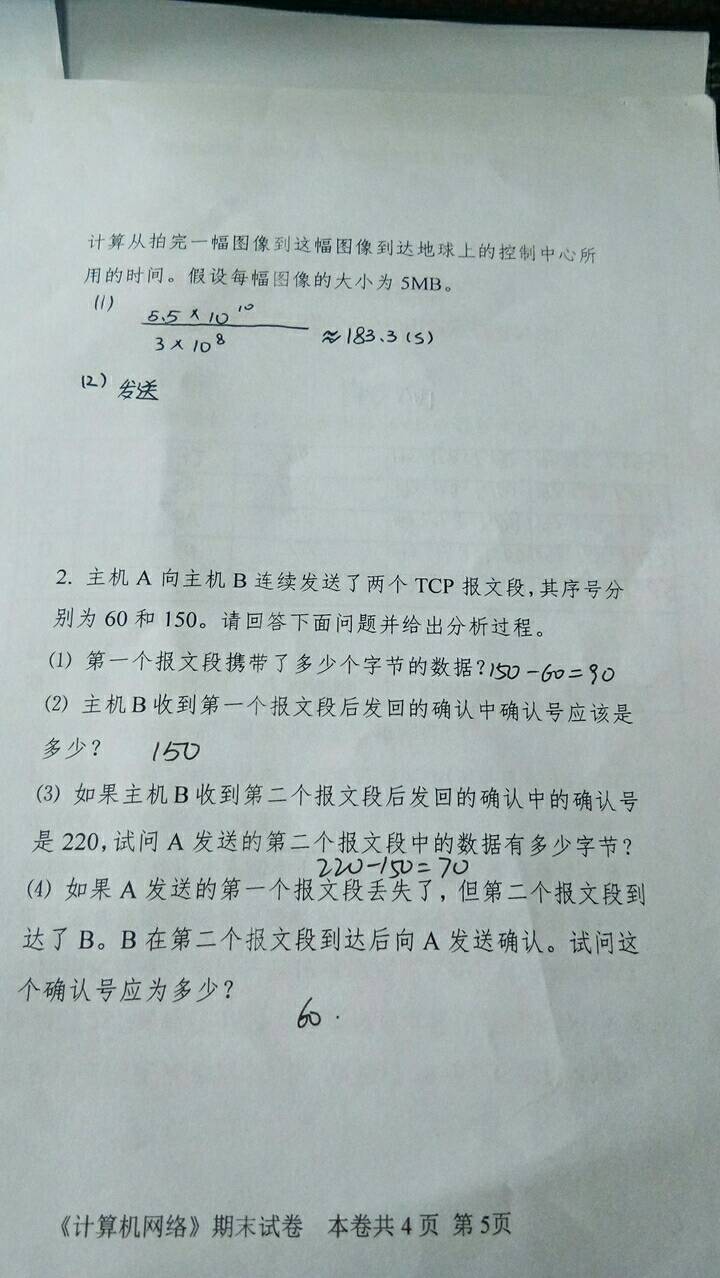 计算从拍完一幅图像到这幅图像到达地球上的控制中心所
用的时间。假设每幅图像的大小为 5MB。
(1)
5.5 × 10^10
3 × 10^8
≈183.3(s)
(2) 发送
2. 主机 A 向主机 B 连续发送了两个 TCP 报文段,其序号分
别为 60 和 150。请回答下面问题并给出分析过程。
(1) 第一个报文段携带了多少个字节的数据?150-60=90
(2) 主机B收到第一个报文段后发回的确认中确认号应该是
多少? 150
(3) 如果主机B收到第二个报文段后发回的确认中的确认号
是 220,试问 A 发送的第二个报文段中的数据有多少字节?
220-150=70
(4) 如果 A 发送的第一个报文段丢失了, 但第二个报文段到
达了 B。B 在第二个报文段到达后向 A 发送确认。试问这
个确认号应为多少?
60.
《计算机网络》期末试卷 本卷共 4 页 第 5页